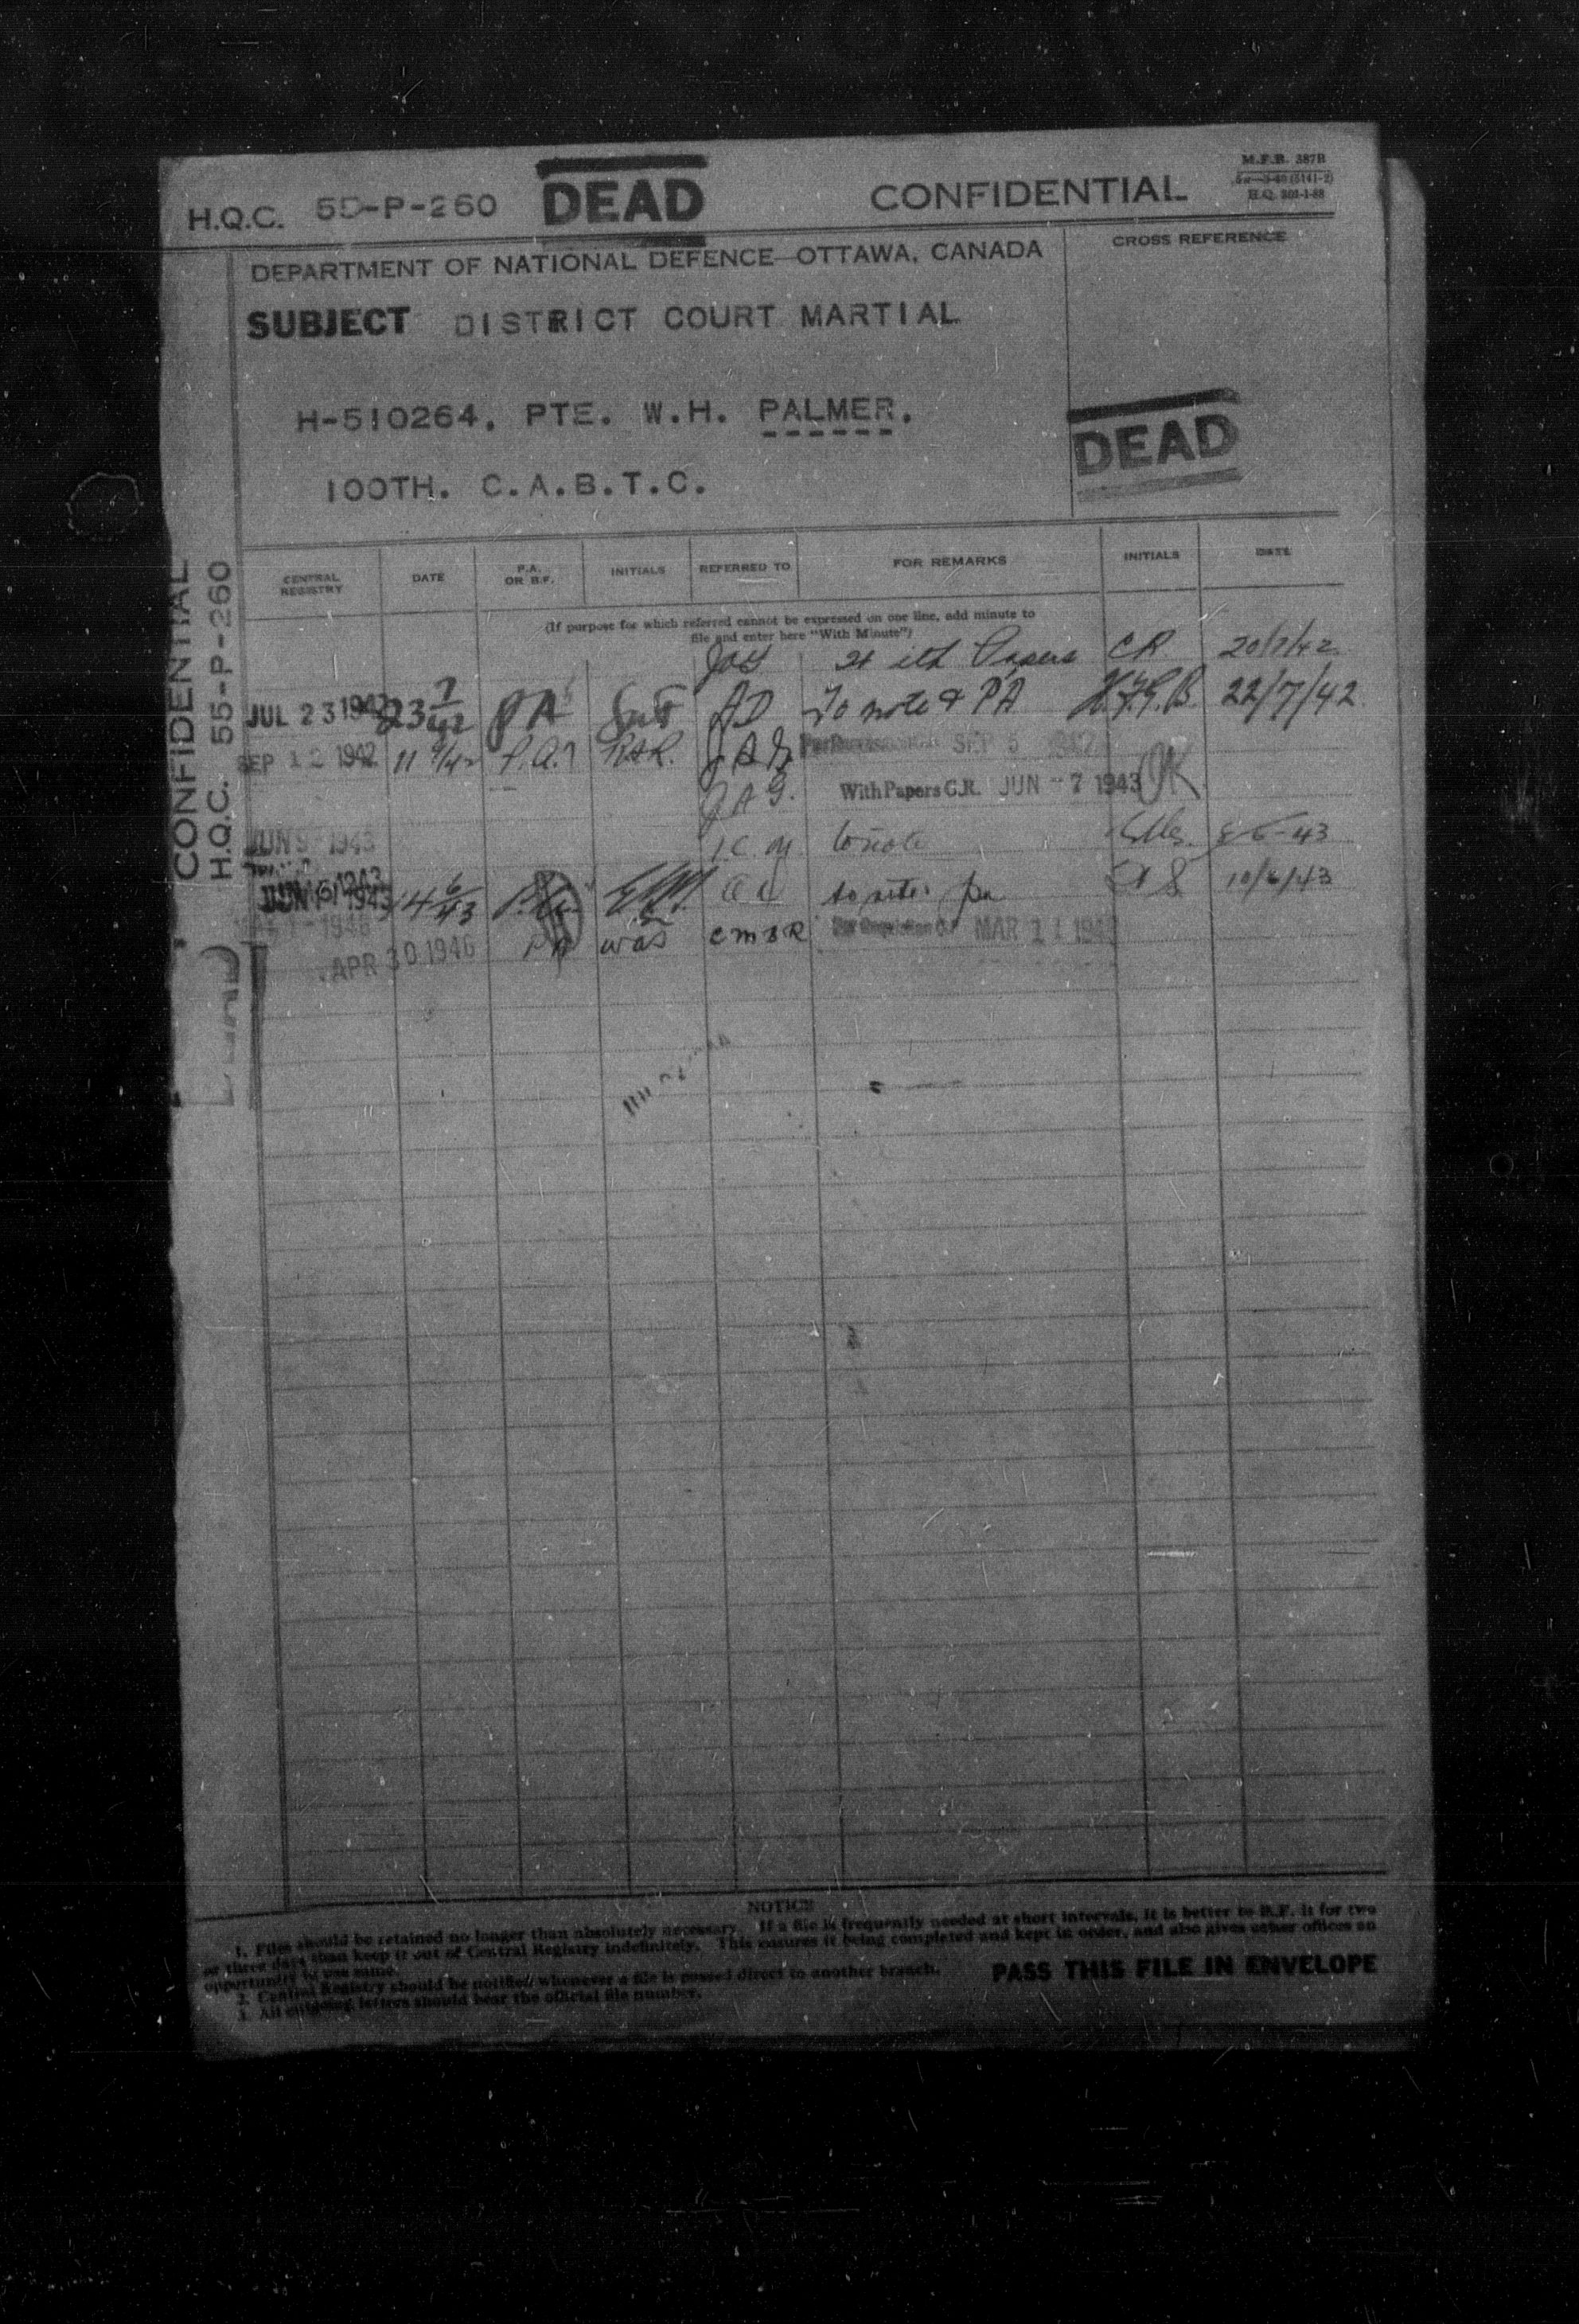 M.F.B. 387B
H.Q.C. 55-P-260 DEAD CONFIDENTIAL
DEPARTMENT OF NATIONAL DEFENCE—OTTAWA, CANADA
CROSS REFERENCE
SUBJECT DISTRICT COURT MARTIAL
H-510264. PTE. W.H. PALMER.
DEAD
100TH. C.A.B.T.C.
CONFIDENTIAL
H.Q.C. 55-P-260
CENTRAL REGISTRY DATE P.A. OR B.F. INITIALS REFERRED TO FOR REMARKS INITIALS DATE
(If purpose for which referred cannot be expressed on one line, add minute to
file and enter here "With Minute")
JAG Papers CR 20/7/42
JUL 23 1942 23 7/42 PA AD To note & PA 22/7/42
SEP 12 1942 11 9/42 P.A. JAG SEP 5 1942
JAG. With Papers C.R. JUN -7 1943
JUN 9 1943 to note 43
14 6/43 to note 10/6/43
APR 30 1946 PA was MAR 11
NOTICE
1. Files should be retained no longer than absolutely necessary. If a file is frequently needed at short intervals, it is better to B.F. it for two
or three days than keep it out of Central Registry indefinitely. This ensures it being completed and kept in order, and also gives other offices an
opportunity to use same.
2. Central Registry should be notified whenever a file is passed direct to another branch.
3. All outgoing letters should bear the official file number.
PASS THIS FILE IN ENVELOPE